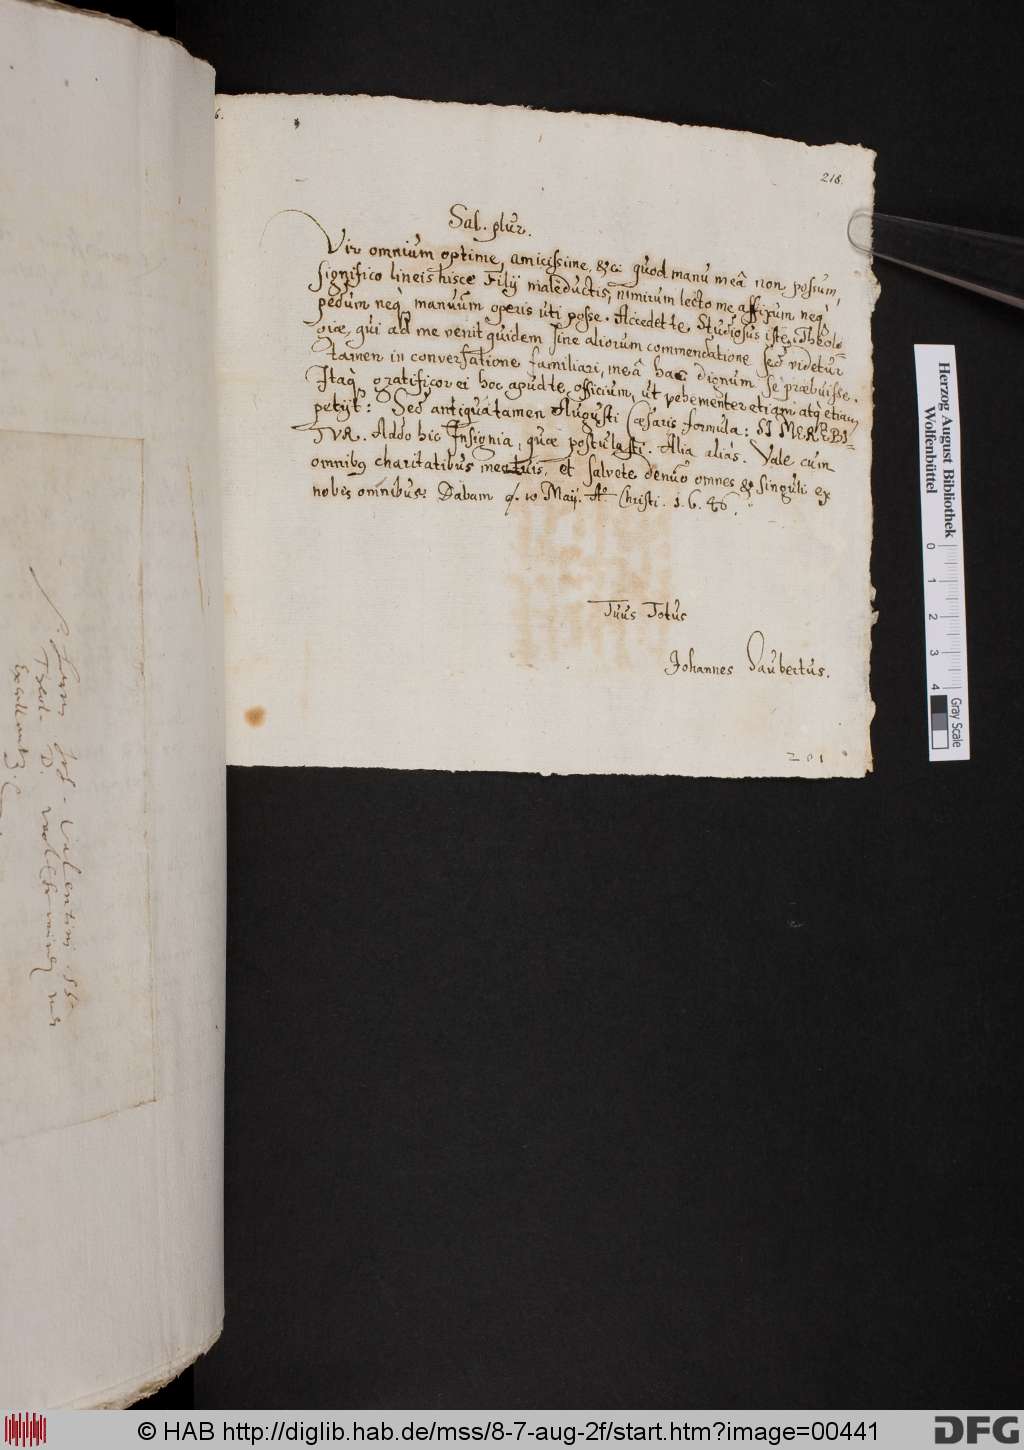 6.
216.
Sal. plur.
Vir omnium optime, amicissime, &c. quod manu meâ non possum,
significo lineis hisce Filij maleductis, nimirum lecto me affixum neq₃
pedum neq₃ manuum operis uti posse. Accedet te Studiosus iste Theolo-
giæ, qui ad me venit quidem sine aliorum commendatione sed videtur
tamen in conversatione familiari, meâ hac dignum se præbuisse.
Itaq₃ gratificor ei hoc apud te officium, ut vehementer etiam atq₃ etiam
petijt: Sed antiquâ tamen Augusti Cæsaris formula: SI MEREBI-
TVR. Addo hic Insignia, quæ postulasti. Alia aliàs. Vale cum
omnibus charitatibus et salvete denuò omnes & singuli ex
nobis omnibus: Dabam 10 Maij. Aº Christi. 1.6.46.
Tuus Totus
Johannes Saubertus.
201
Herzog August Bibliothek
Wolfenbüttel
0 1 2 3 4
Gray Scale
© HAB http://diglib.hab.de/mss/8-7-aug-2f/start.htm?image=00441
DFG